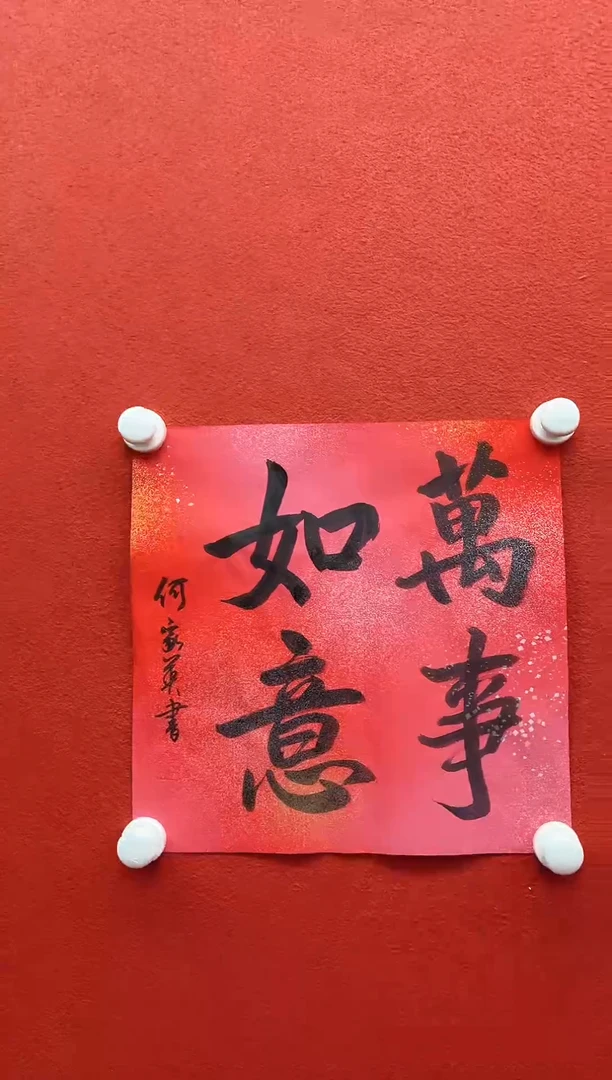 萬事
如意
何家英書